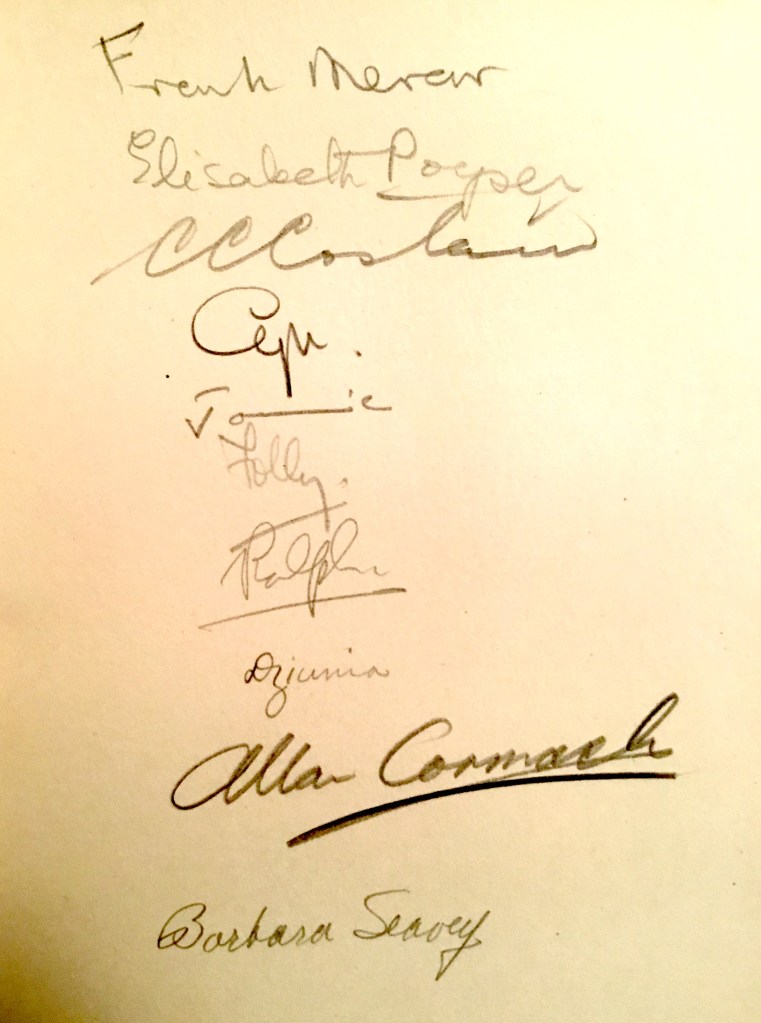 Frank Mercer
Elisabeth
C C Costain
Jamie
Folly.
Ralph
Dziunia
Allan Cormack
Barbara Seavey